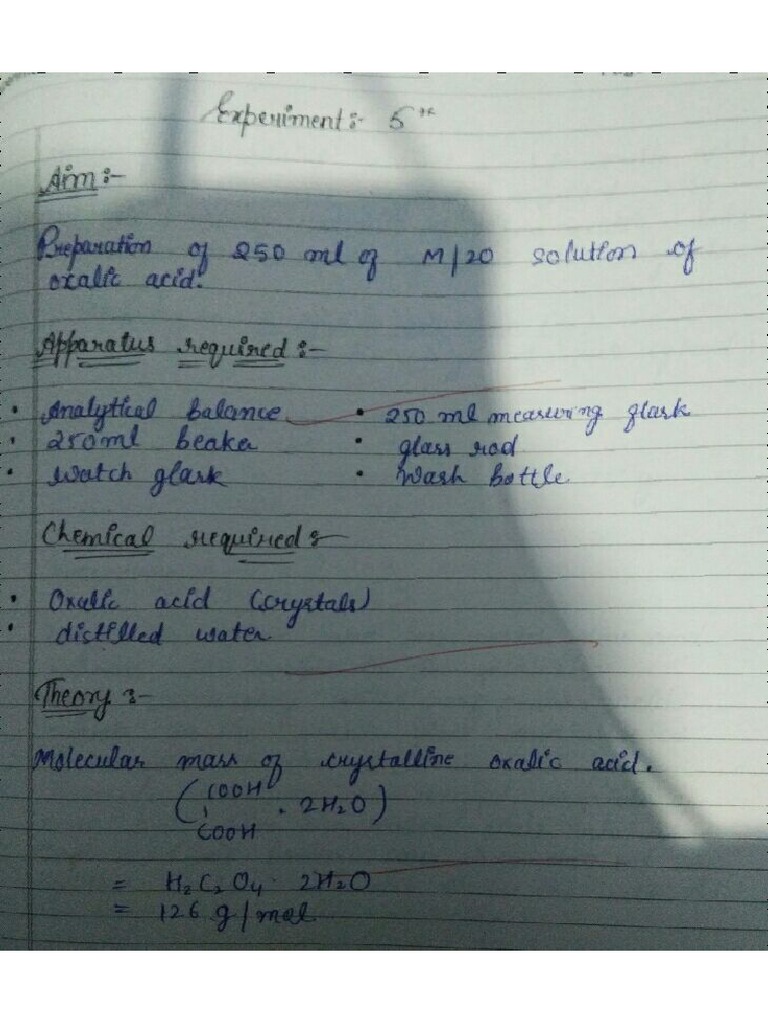 Experiment:- 5th
Aim:-
Preparation of 250 ml of M/20 solution of
oxalic acid.
Apparatus required:-
• Analytical balance • 250 ml measuring glask
• 250ml beaker • glass rod
• watch glask • Wash bottle
Chemical required:-
• Oxalic acid (crystals)
• distilled water
Theory:-
Molecular mass of crystalline oxalic acid.
(COOH
. 2H₂O)
COOH
= H₂C₂O₄. 2H₂O
= 126 g/mol